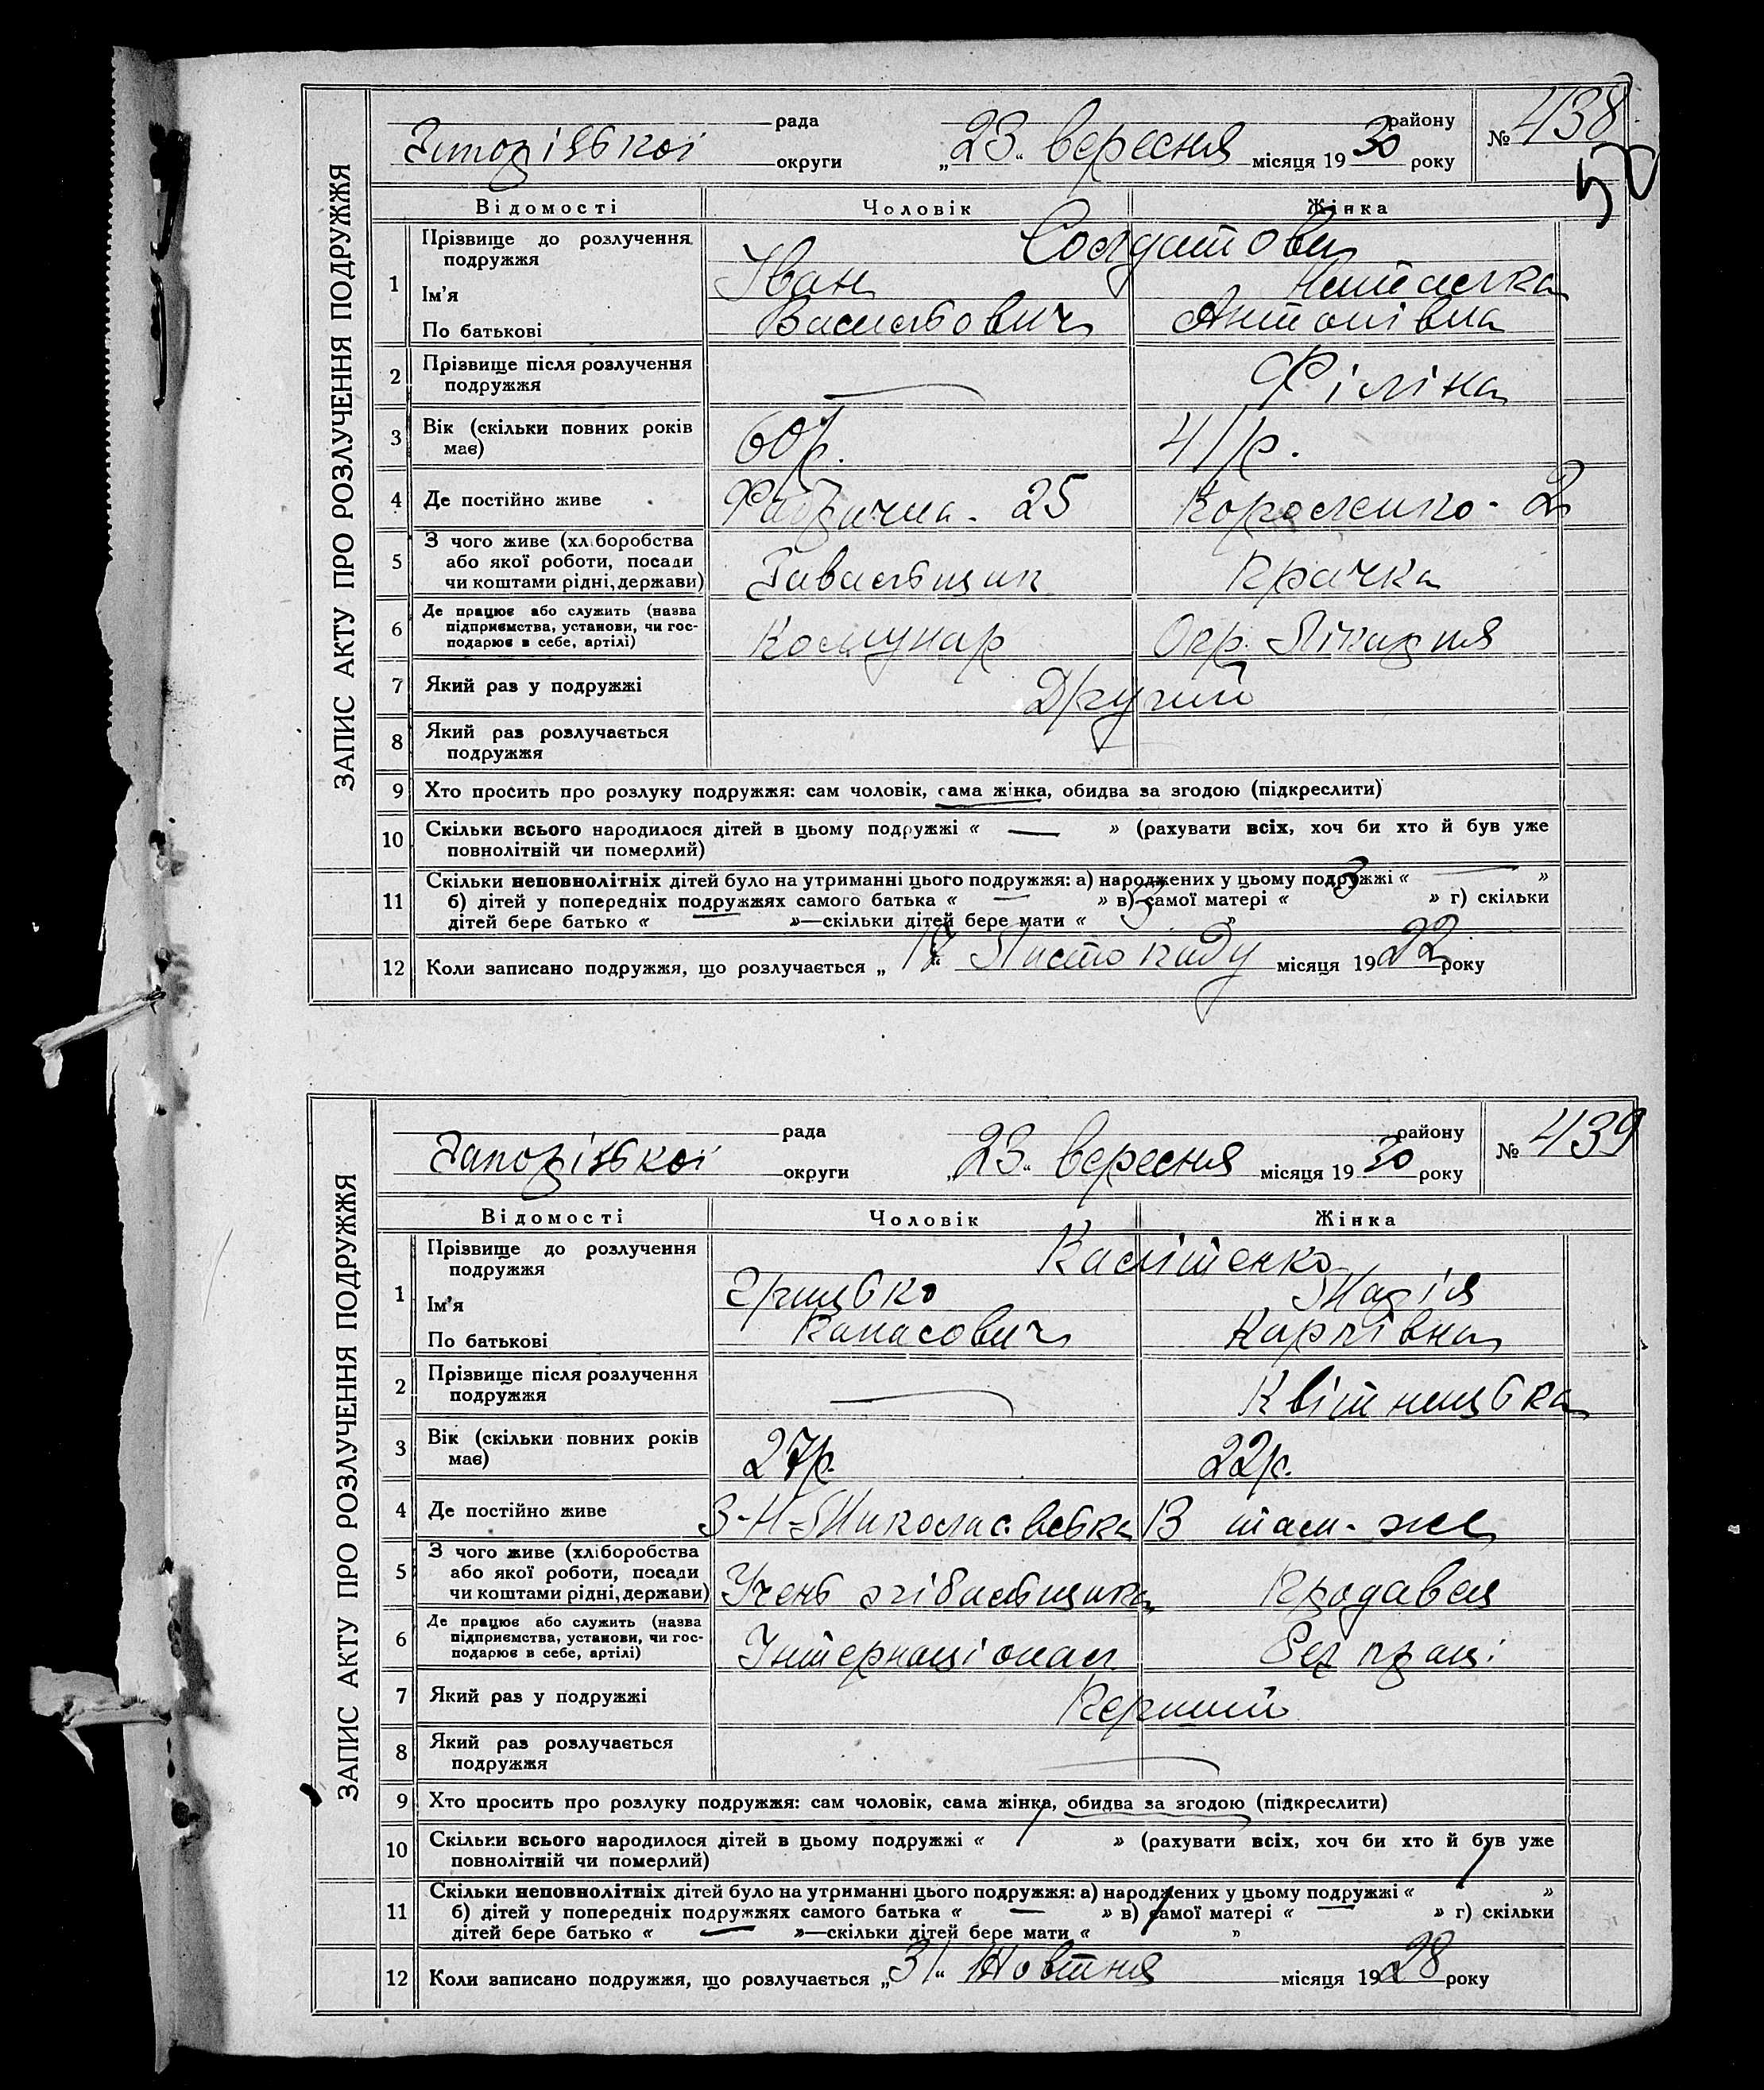 ЗАПИС АКТУ ПРО РОЗЛУЧЕННЯ ПОДРУЖЖЯ
рада району № 438
Запорізької округи „23“ вересня місяця 1930 року
50
Відомості Чоловік Жінка
1 Прізвище до розлучення подружжя Солдатови
Ім'я Іван Наталка
По батькові Васильович Антонівна
2 Прізвище після розлучення подружжя — Філіна
3 Вік (скільки повних років має) 60 р. 41 р.
4 Де постійно живе Фабрична - 25 Короленко - 2
5 З чого живе (хліборобства або якої роботи, посади чи коштами рідні, держави) Прачка
6 Де працює або служить (назва підприємства, установи, чи господарює в себе, артілі) Комунар Окр. Лікарня
7 Який раз у подружжі Другий
8 Який раз розлучається подружжя
9 Хто просить про розлуку подружжя: сам чоловік, сама жінка, обидва за згодою (підкреслити)
10 Скільки всього народилося дітей в цьому подружжі « — » (рахувати всіх, хоч би хто й був уже
повнолітній чи померлий)
11 Скільки неповнолітніх дітей було на утриманні цього подружжя: а) народжених у цьому подружжі « — »
б) дітей у попередніх подружжях самого батька « — » в) самої матері « 3 » г) скільки
дітей бере батько « — »—скільки дітей бере мати « 3 »
12 Коли записано подружжя, що розлучається „ “ Листопаду місяця 1922 року
ЗАПИС АКТУ ПРО РОЗЛУЧЕННЯ ПОДРУЖЖЯ
рада району № 439
Запорізької округи „23“ вересня місяця 1930 року
Відомості Чоловік Жінка
1 Прізвище до розлучення подружжя Калітенко
Ім'я Грицько Марія
По батькові Панасович Карпівна
2 Прізвище після розлучення подружжя — Квітницька
3 Вік (скільки повних років має) 27 р. 22 р.
4 Де постійно живе В там-же
5 З чого живе (хліборобства або якої роботи, посади чи коштами рідні, держави) Учень Продавец
6 Де працює або служить (назва підприємства, установи, чи господарює в себе, артілі) Інтернаціонал Без праці
7 Який раз у подружжі Перший
8 Який раз розлучається подружжя —
9 Хто просить про розлуку подружжя: сам чоловік, сама жінка, обидва за згодою (підкреслити)
10 Скільки всього народилося дітей в цьому подружжі « 1 » (рахувати всіх, хоч би хто й був уже
повнолітній чи померлий)
11 Скільки неповнолітніх дітей було на утриманні цього подружжя: а) народжених у цьому подружжі « 1 »
б) дітей у попередніх подружжях самого батька « — » в) самої матері « — » г) скільки
дітей бере батько « — »—скільки дітей бере мати « 1 »
12 Коли записано подружжя, що розлучається „31“ Жовтня місяця 1928 року